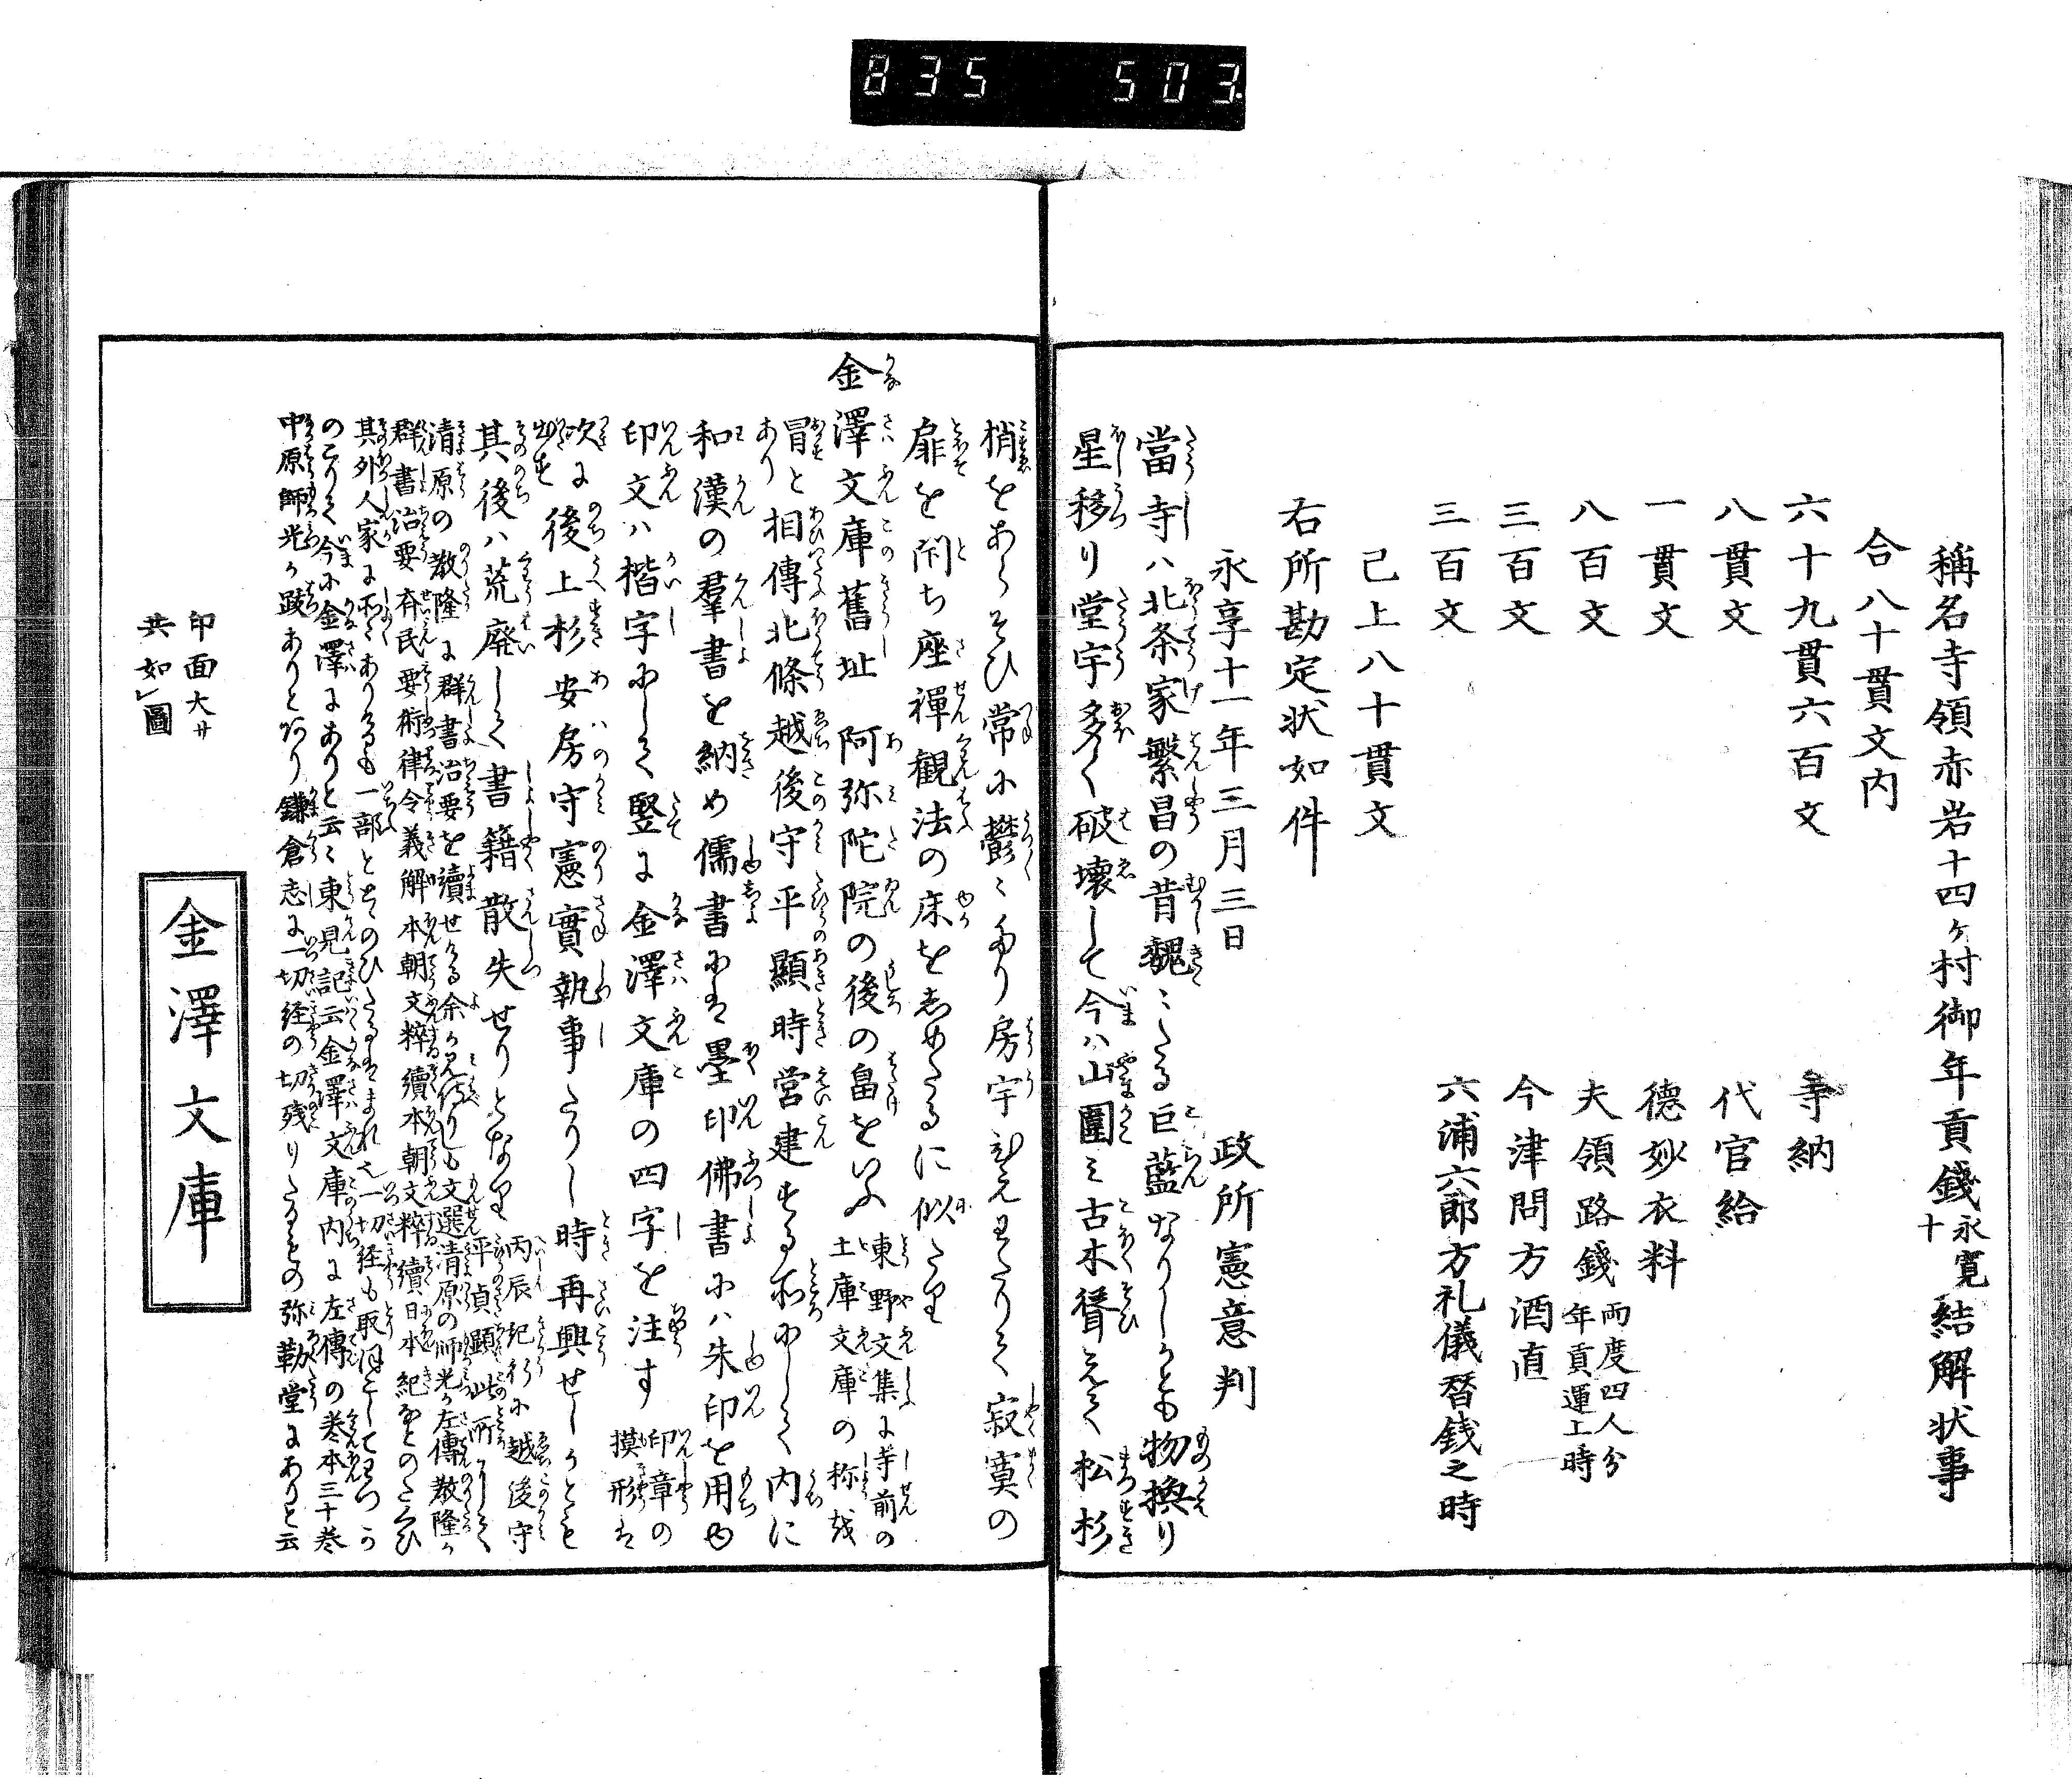 835 503
稱名寺領赤岩十四ヶ村御年貢錢永寛十結解状事
合八十貫文内
六十九貫六百文 寺納
八貫文 代官給
一貫文 德妙衣料
八百文 夫領路錢 両度四人分年貢運上時
三百文 今津問方酒直
三百文 六浦六郎方礼儀替錢之時
已上八十貫文
右所勘定状如件
永享十一年三月三日 政所憲意判
當寺ハ北条家繁昌の昔巍〻たる巨藍なりしかとも物換り
星移り堂宇多く破壊して今ハ山圍ミ古木聳えて松杉
梢をあらそひ常に鬱〻たり房宇甍えわたりて寂寞の
扉を閉ち座禪觀法の床をしめたるに似たり
金澤文庫舊址 阿弥陀院の後の畠をいふ 東野文集に寺前の土庫文庫の称を
冒とありと 相傳北條越後守平顯時営建する所にして内に
和漢の羣書を納め儒書には墨印佛書にハ朱印を用ゆ
印文ハ楷字にして竪に金澤文庫の四字を注す 印章の摸形は
次に出す 後上杉安房守憲實執事たりし時再興せしかとも
其後ハ荒廃して書籍散失せりとなり 丙辰紀行に越後守平貞顯此所にして
清原の教隆に群書治要を讀せける余か見侍りしも文選清原の師光か左傳教隆か
群書治要斉民要術律令義解本朝文粹續本朝文粹續日本紀なとのたくひ
其外人家に所〻ありけるも一部とゝのひたるはまれ也一切経も取ほこしてわつか
のこりて今に金澤にありと云〻東見記云金澤文庫内に左傳の巻本三十巻
中原師光か跋ありとなり鎌倉志に一切経の切残りたるもの弥勒堂にありと云
印面大サ
共如圖
金澤文庫